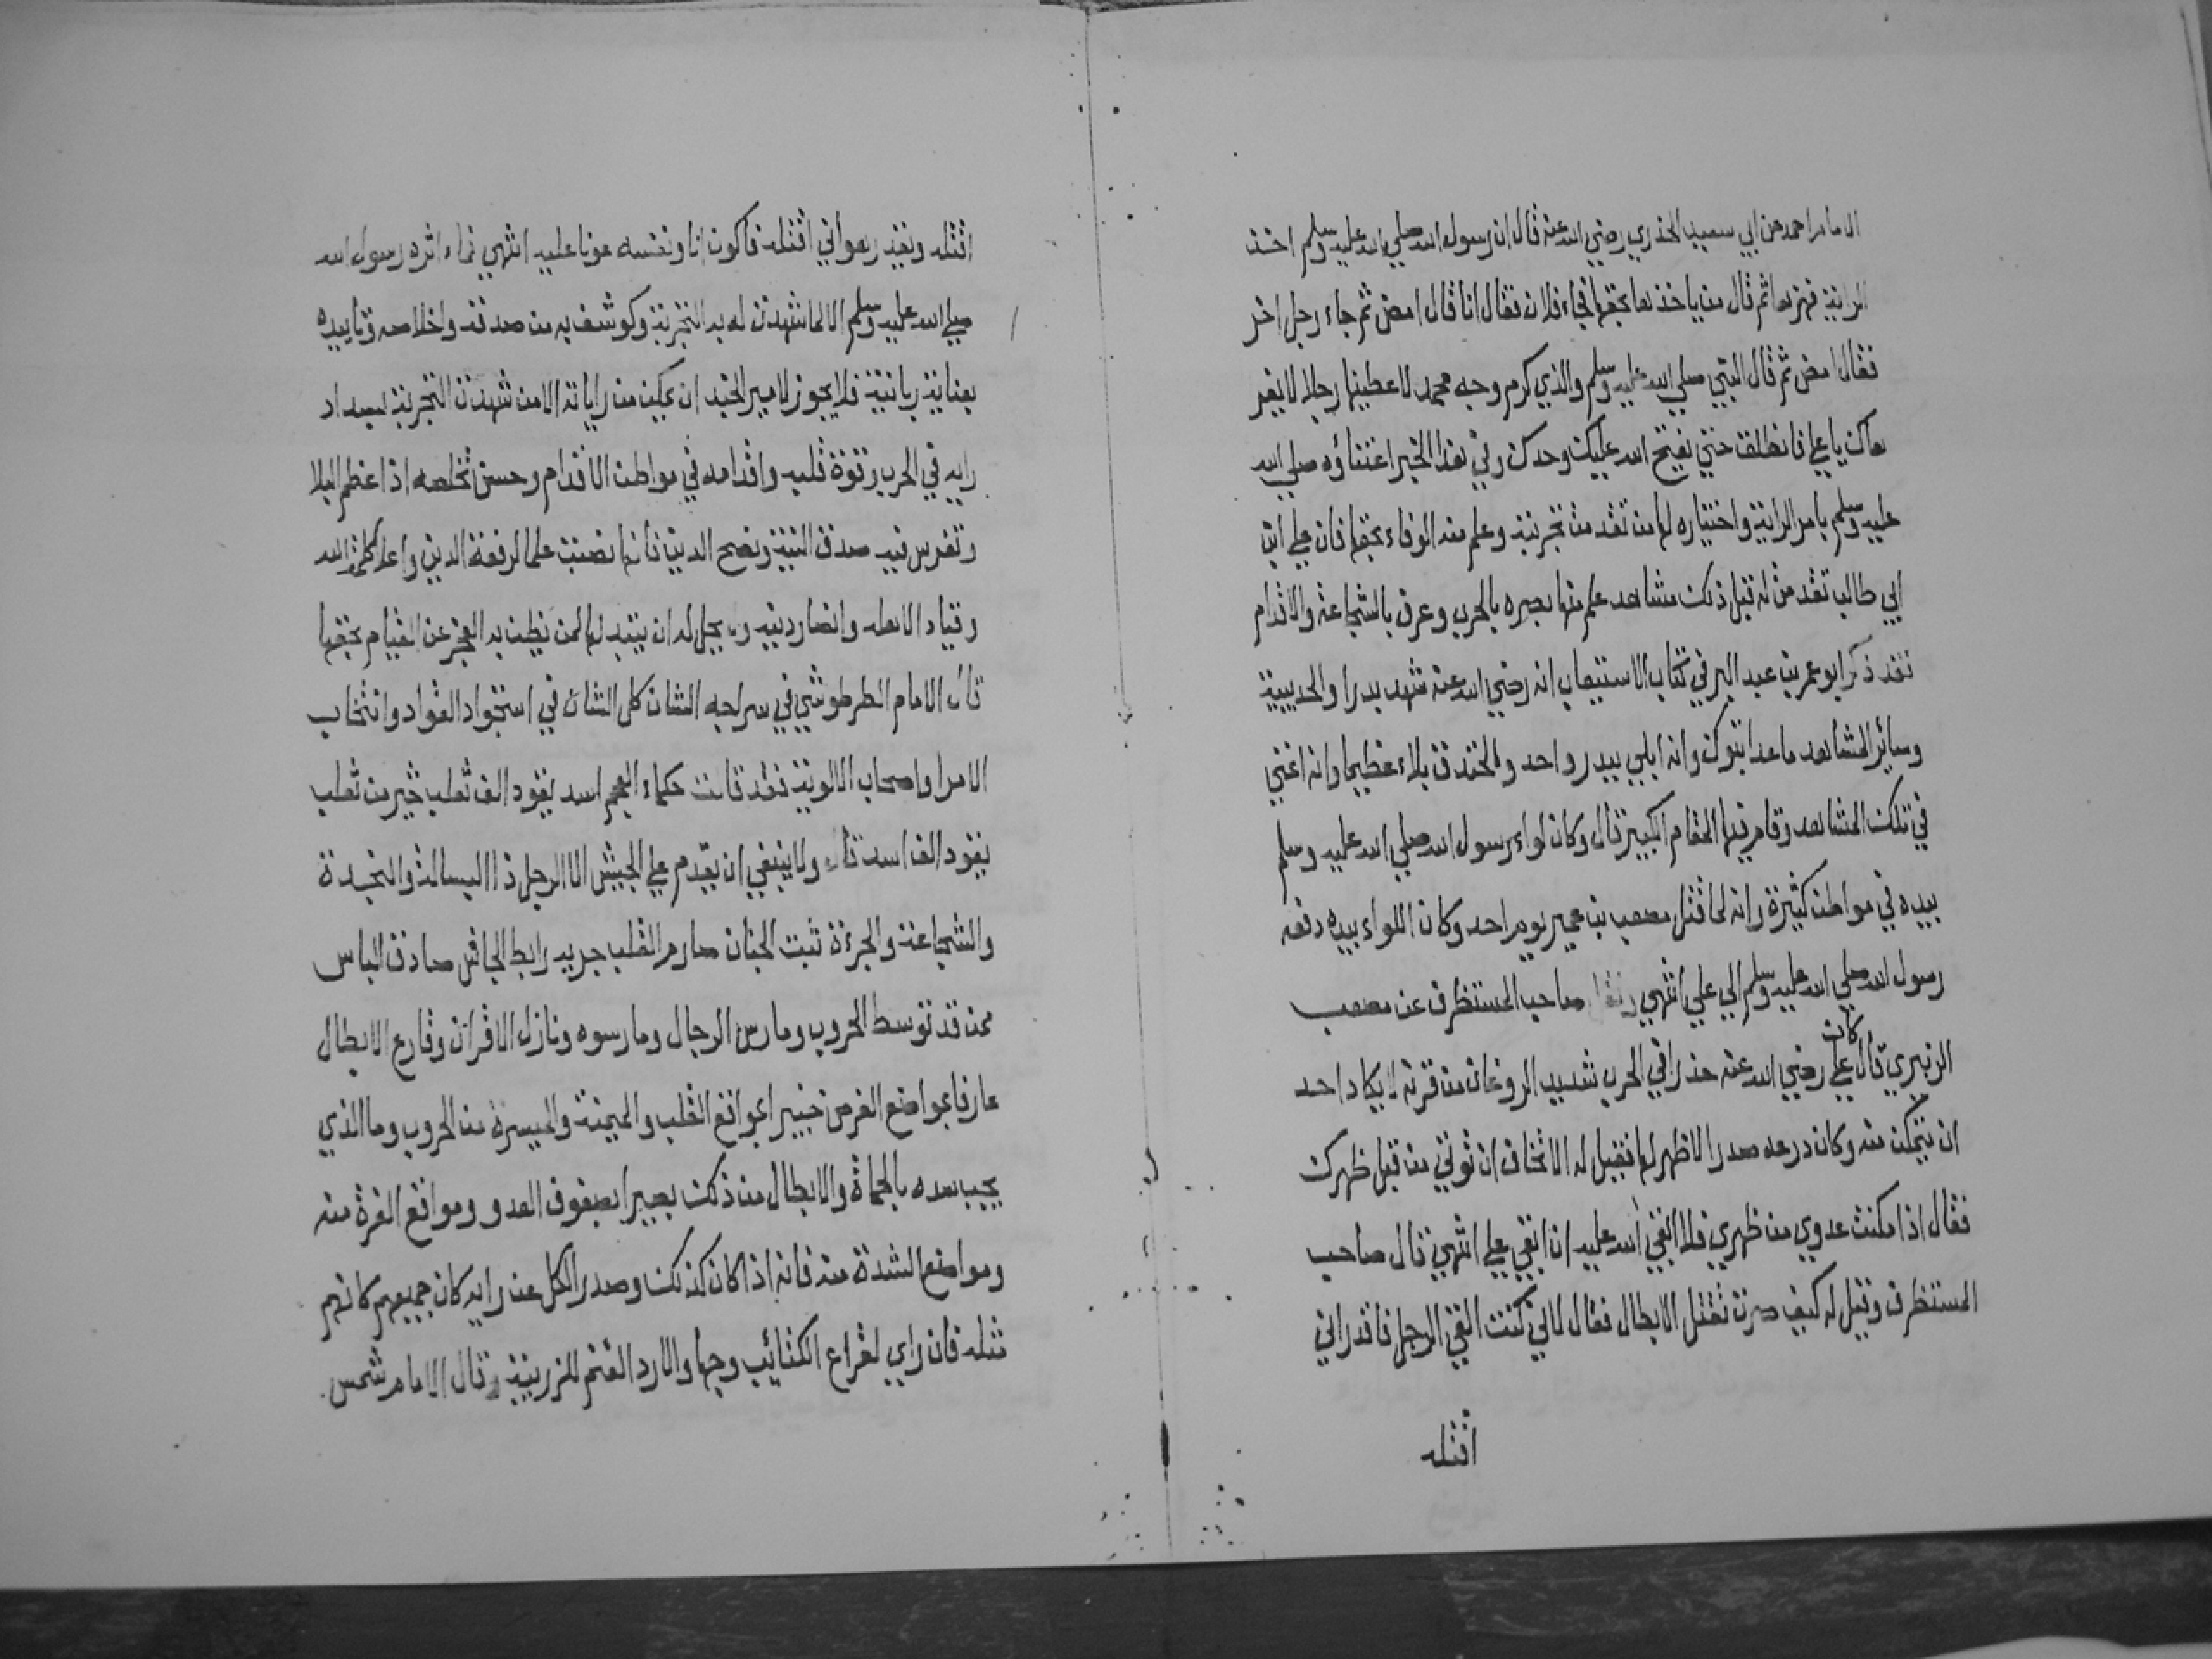 الامام احمد عن ابي سعيد الخدري رضي الله عنه قال ان رسول الله صلي الله عليه وسلم اخذ
الراية فهزها ثم قال من ياخذها بحقها فجاء فلان فقال انا قال امض ثم جاء رجل اخر
فقال امض ثم قال النبي صلي الله عليه وسلم والذي كرم وجه محمد لاعطينها رجلا لا يفر
هاك يا علي فانطلق حتي يفتح الله عليك وحدك وفي هذا الخبر اعتناؤه صلي الله
عليه وسلم بامر الراية واختياره لها من تقدمت تجربته وعلم منه الوفاء بحقها فان علي ابن
ابي طالب تقدمت له قبل ذلك مشاهد علم منها بصره بالحرب وعرف بالشجاعة والاقدام
فقد ذكر ابو عمر بن عبد البر في كتاب الاستيعاب انه رضي الله عنه شهد بدرا والحديبية
وساير المشاهد ما عدا تبوك وانه ابلي ببدر واحد والخندق بلاء عظيما وانه اغني
في تلك المشاهد وقام فيها المقام الكبير قال وكان لواء رسول الله صلي الله عليه وسلم
بيده في مواطن كثيرة وانه لما قتل مصعب بن عمير يوم احد وكان اللواء بيده دفعه
رسول الله صلي الله عليه وسلم الي علي انتهي ونقل صاحب المستظرف عن مصعب
الزبيري قال كان علي رضي الله عنه حذرا في الحرب شديد الروغان من قرنه لا يكاد احد
ان يتمكن منه وكان درعه صدرا لا ظهر لها فقيل له الا تخاف ان توتي من قبل ظهرك
فقال اذا مكنت عدوي من ظهري فلا ابقي الله عليه ان ابقي علي انتهي قال صاحب
المستظرف وقيل له كيف صرت تقتل الابطال فقال لاني كنت القي الرجل فاقدر اني
اقتله
اقتله ويقدر هو اني اقتله فاكون انا ونفسه عونا عليه انتهي فما اثره رسول الله
صلي الله عليه وسلم الا لما شهدت له به التجربة وكوشف به من صدقه واخلاصه وتاييده
بعناية ربانية فلا يجوز لامير الجند ان يمكن من راياته الا من شهدت التجربة بسداد
رايه في الحرب وقوة قلبه واقدامه في مواطن الاقدام وحسن تخلصه اذا عظم البلا
وتفرس فيه صدق النية ونصح الدين فانها نصبت علما لرفعة الدين واعلا كلمة الله
وقياد لاهله وانصار دينه ولا يحل له ان يقيد لها لمن يظن به العجز عن القيام بحقها
قال الامام الطرطوشي في سراجه الشان كل الشان في استجواد القواد وانتخاب
الامرا واصحاب الالوية فقد قالت حكماء العجم اسد يقود الف ثعلب خير من ثعلب
يقود الف اسد قال ولا ينبغي ان يقدم علي الجيش الا الرجل ذا البسالة والنجدة
والشجاعة والجرءة ثبت الجنان صارم القلب جريه رابط الجاش صادق الباس
ممن قد توسط الحروب ومارس الرجال ومارسوه ونازل الاقران وقارع الابطال
عارفا بمواضع الفرص خبيرا بمواقع القلب والميمنة والميسرة من الحروب وما الذي
يجب سده بالحماة والابطال من ذلك بصيرا بصفوف العدو ومواقع الغرة منه
ومواضع الشدة منه فانه اذا كان كذلك وصدر الكل عن رايه كان جميعهم كانهم
مثله فان راي لقراع الكتائب وجها والا رد الغنم للزريبة وقال الامام شمس